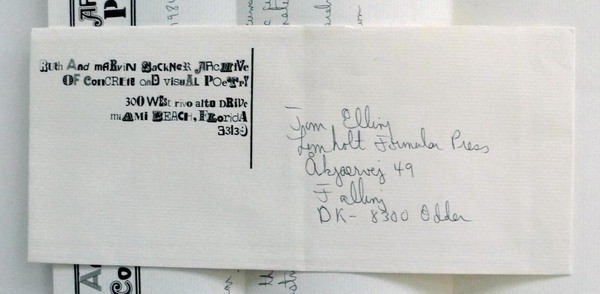 RUtH And mARviN SAcKNeR ARcHive
OF ConCREtE anD visuAL POeTrY
300 WESt rivo altO DRiVe
miAMi BEACH, FLoridA
33139
Tom Elling
Lomholt Formular Press
Åkjærvej 49
Falling
DK- 8300 Odder